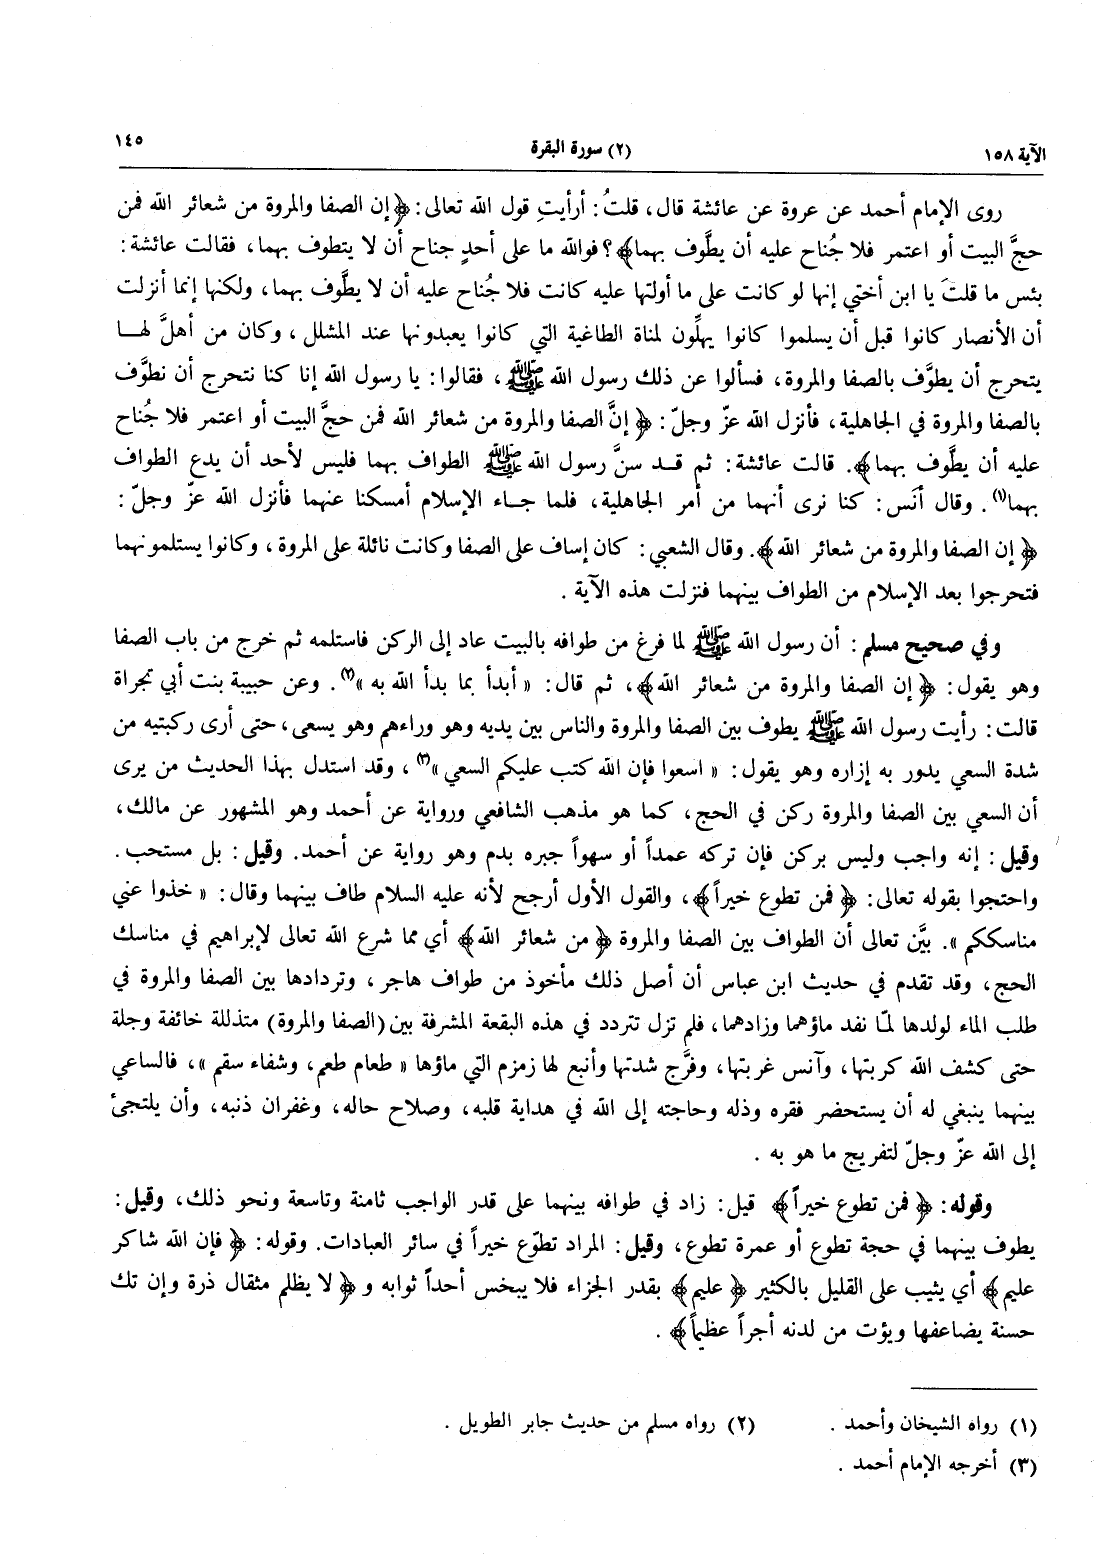 الآية ١٥٨
(٢) سورة البقرة
١٤٥
روى الإمام أحمد عن عروة عن عائشة قال، قلتُ: أرأيتِ قول الله تعالى: ﴿إن الصفا والمروة من شعائر الله فمن
حجَّ البيت أو اعتمر فلا جُناح عليه أن يطَّوف بهما﴾؟ فوالله ما على أحدٍ جناح أن لا يتطوف بهما، فقالت عائشة:
بئس ما قلتَ يا ابن أختي إنها لو كانت على ما أولتها عليه كانت فلا جُناح عليه أن لا يطَّوف بهما، ولكنها إنما أنزلت
أن الأنصار كانوا قبل أن يسلموا كانوا يهلِّون لمناة الطاغية التي كانوا يعبدونها عند المشلل، وكان من أهلَّ لهـا
يتحرج أن يطوَّف بالصفا والمروة، فسألوا عن ذلك رسول الله ﷺ، فقالوا: يا رسول الله إنا كنا نتحرج أن نطوَّف
بالصفا والمروة في الجاهلية، فأنزل الله عزّ وجلّ: ﴿إنَّ الصفا والمروة من شعائر الله فمن حجَّ البيت أو اعتمر فلا جُناح
عليه أن يطَّوف بهما﴾. قالت عائشة: ثم قـد سنَّ رسول الله ﷺ الطواف بهما فليس لأحد أن يدع الطواف
بهما(١). وقال أنَس: كنا نرى أنهما من أمر الجاهلية، فلما جـاء الإسلام أمسكنا عنهما فأنزل الله عزّ وجلّ:
﴿إن الصفا والمروة من شعائر الله﴾. وقال الشعبي: كان إساف على الصفا وكانت نائلة على المروة، وكانوا يستلمونهما
فتحرجوا بعد الإسلام من الطواف بينهما فنزلت هذه الآية.
وفي صحيح مسلم: أن رسول الله ﷺ لما فرغ من طوافه بالبيت عاد إلى الركن فاستلمه ثم خرج من باب الصفا
وهو يقول: ﴿إن الصفا والمروة من شعائر الله﴾، ثم قال: « أبدأ بما بدأ الله به »(٢). وعن حبيبة بنت أبي تجراة
قالت: رأيت رسول الله ﷺ يطوف بين الصفا والمروة والناس بين يديه وهو وراءهم وهو يسعى، حتى أرى ركبتيه من
شدة السعي يدور به إزاره وهو يقول: « اسعوا فإن الله كتب عليكم السعي »(٣)، وقد استدل بهذا الحديث من يرى
أن السعي بين الصفا والمروة ركن في الحج، كما هو مذهب الشافعي ورواية عن أحمد وهو المشهور عن مالك،
وقيل: إنه واجب وليس بركن فإن تركه عمداً أو سهواً جبره بدم وهو رواية عن أحمد. وقيل: بل مستحب.
واحتجوا بقوله تعالى: ﴿فمن تطوع خيراً﴾، والقول الأول أرجح لأنه عليه السلام طاف بينهما وقال: « خذوا عني
مناسككم ». بيَّن تعالى أن الطواف بين الصفا والمروة ﴿من شعائر الله﴾ أي مما شرع الله تعالى لإبراهيم في مناسك
الحج، وقد تقدم في حديث ابن عباس أن أصل ذلك مأخوذ من طواف هاجر، وتردادها بين الصفا والمروة في
طلب الماء لولدها لمّا نفد ماؤهما وزادهما، فلم تزل تتردد في هذه البقعة المشرفة بين (الصفا والمروة) متذللة خائفة وجلة
حتى كشف الله كربتها، وآنس غربتها، وفرَّج شدتها وأنبع لها زمزم التي ماؤها « طعام طعم، وشفاء سقم »، فالساعي
بينهما ينبغي له أن يستحضر فقره وذله وحاجته إلى الله في هداية قلبه، وصلاح حاله، وغفران ذنبه، وأن يلتجئ
إلى الله عزّ وجلّ لتفريج ما هو به.
وقوله: ﴿فمن تطوع خيراً﴾ قيل: زاد في طوافه بينهما على قدر الواجب ثامنة وتاسعة ونحو ذلك، وقيل:
يطوف بينهما في حجة تطوع أو عمرة تطوع، وقيل: المراد تطوّع خيراً في سائر العبادات. وقوله: ﴿فإن الله شاكر
عليم﴾ أي يثيب على القليل بالكثير ﴿عليم﴾ بقدر الجزاء فلا يبخس أحداً ثوابه و﴿لا يظلم مثقال ذرة وإن تك
حسنة يضاعفها ويؤت من لدنه أجراً عظيماً﴾.
(١) رواه الشيخان وأحمد. (٢) رواه مسلم من حديث جابر الطويل.
(٣) أخرجه الإمام أحمد.